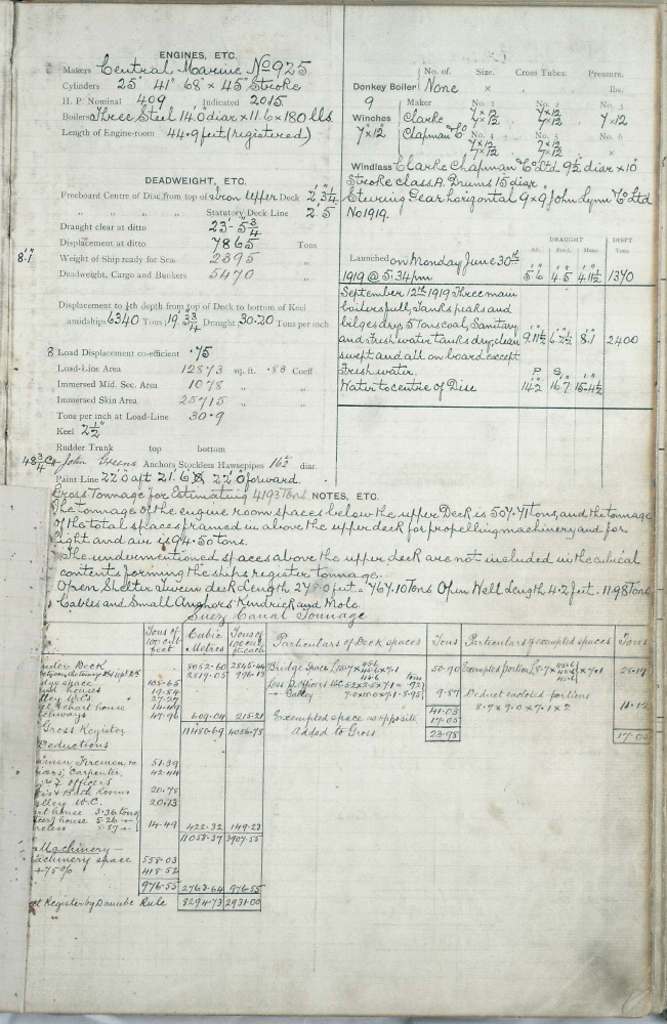 ENGINES, ETC.
Makers Central Marine No 925
Cylinders 25" 41" 68" × 45" Stroke
H. P. Nominal 409 Indicated 2015
Boilers Three Steel 14'.0 diar × 11'.6 × 180 lbs
Length of Engine-room 44.9 feet (registered)
DEADWEIGHT, ETC.
Freeboard Centre of Disc from top of Iron Upper Deck 2' 3 1/4"
" " " " Statutory Deck Line 2' 5"
Draught clear at ditto 23'-5 3/4
Displacement at ditto 7865 Tons
8.1 Weight of Ship ready for Sea 2395 "
Deadweight, Cargo and Bunkers 5470 "
Displacement to 1/4th depth from top of Deck to bottom of Keel
amidships 6340 Tons 19' 3 3/4" Draught 30.20 Tons per inch
8 Load Displacement co-efficient .75
Load-Line Area 12873 sq. ft. .88 Coeff
Immersed Mid. Sec. Area 1078 "
Immersed Skin Area 25715 "
Tons per inch at Load-Line 30.9
Keel 2 1/2"
Rudder Trunk top bottom
John Greens Anchors Stockless Hawsepipes 16 1/2 diar.
Paint Line 22'.0 aft 21'.6 22'.0 forward
No. of. Size. Cross Tubes. Pressure.
Donkey Boiler None × × lbs.
9 Maker No. 1 No. 2 No. 3
Winches Clarke 7×12 7×12 7×12
7"×12" Chapman & Co No. 4 No. 5 No. 6
7×12 7×12 ×
7×12 7×12
Windlass Clarke Chapman & Co Ltd 9 1/2 diar × 10"
Stroke class A. Drums 15 diar.
Steering Gear horizontal 9×9 John Lynn & Co Ltd
No 1919.
DRAUGHT DISPT
Aft. Ford. Mean. Tons
Launched on Monday June 30th
1919 @ 5.34 pm 5'.6" 4'.5" 4'.11 1/2" 1370
September 12th 1919 Three main
boilers full, Tanks peaks and
bilges dry, 5 Tons coal, Sanitary
and Freshwater tanks dry, clean 9'.11 1/2 6'.2 1/2 8'.1" 2400
swept and all on board except
Freshwater. P S
Water to centre of Disc 14'.2 16'.7 15'.4 1/2
Gross Tonnage for Estimating 4193 Tons NOTES, ETC.
The tonnage of the engine room spaces below the upper Deck is 507.71 tons, and the tonnage
of the total spaces framed in above the upper deck for propelling machinery and for
light and air is 94.50 tons.
The undermentioned spaces above the upper deck are not included in the cubical
contents forming the ships register tonnage.
Open Shelter Tween deck Length 278.0 feet = 767.10 Tons Open Well Length 4.2 feet. 11.98 Tons
Cables and Small Anchors Kendrick and Mole.
Suez Canal Tonnage
Tons of 100 cub. feet Cubic Metres Tons of 100 cub. ft each Particulars of Deck spaces Tons Particulars of exempted spaces Tons
Under Deck 8052.60 2845.44
2819.05 996.13
space 103.65
houses 19.54
W.C's 27.27
chart house 14.49
47.96 609.04 215.21
Gross Register 11480.69 4056.78
Bridge Space 50.90
Less D. Officers W.C. 5.2×2.5×7.1 = .92
Galley 7.0×18.0×7.1 = 8.95 9.87
41.03
Exempted space as opposite 17.05
Added to Gross 23.98
Exempted Portion
Deduct enclosed portions
8.9 × 9.0 × 7.1 × 2
17.05
Deductions
Seamen, Firemen &c 51.39
Carpenter, 42.44
Officers
& Bath Rooms 20.75
W.C. 20.13
house 3.36 tons
house 5.26
14.49 422.32 149.23
11058.37 3907.55
Machinery
Machinery space 558.03
+75% 418.52
976.55 2763.64 976.55
Register by Danube Rule 8294.73 2931.00